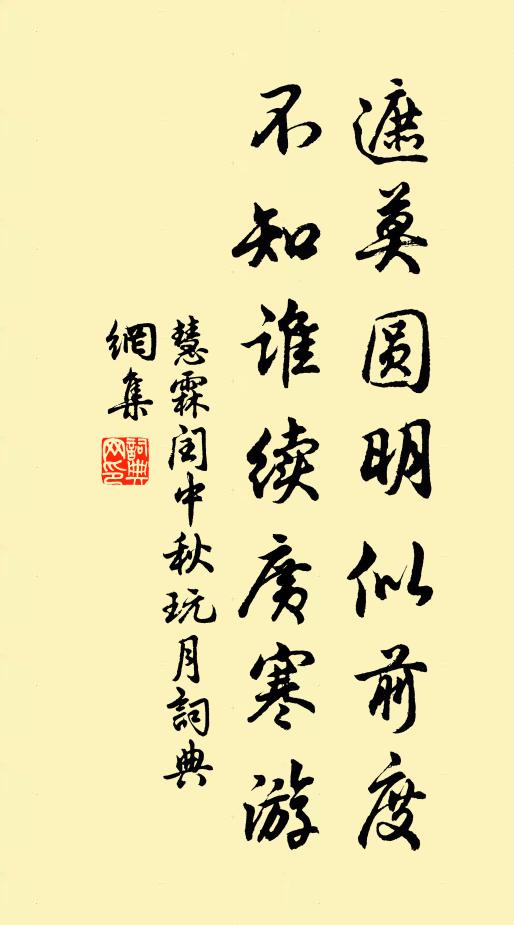 遮莫圆明似前度
不知谁续广寒游
慧霖闰中秋玩月詞典
網集
詞典
网印